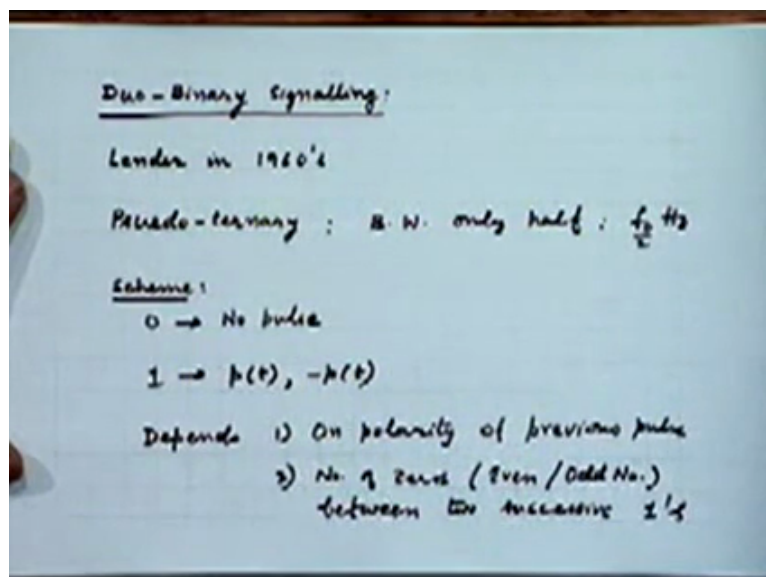 Duo-Binary Signalling:
Lender in 1960's
Pseudo-ternary : B.W. only half : fb/2 Hz
Scheme:
0 → No pulse
1 → p(t), -p(t)
Depends 1) On polarity of previous pulse
2) No. of zeros (Even/Odd No.)
between two successive 1's